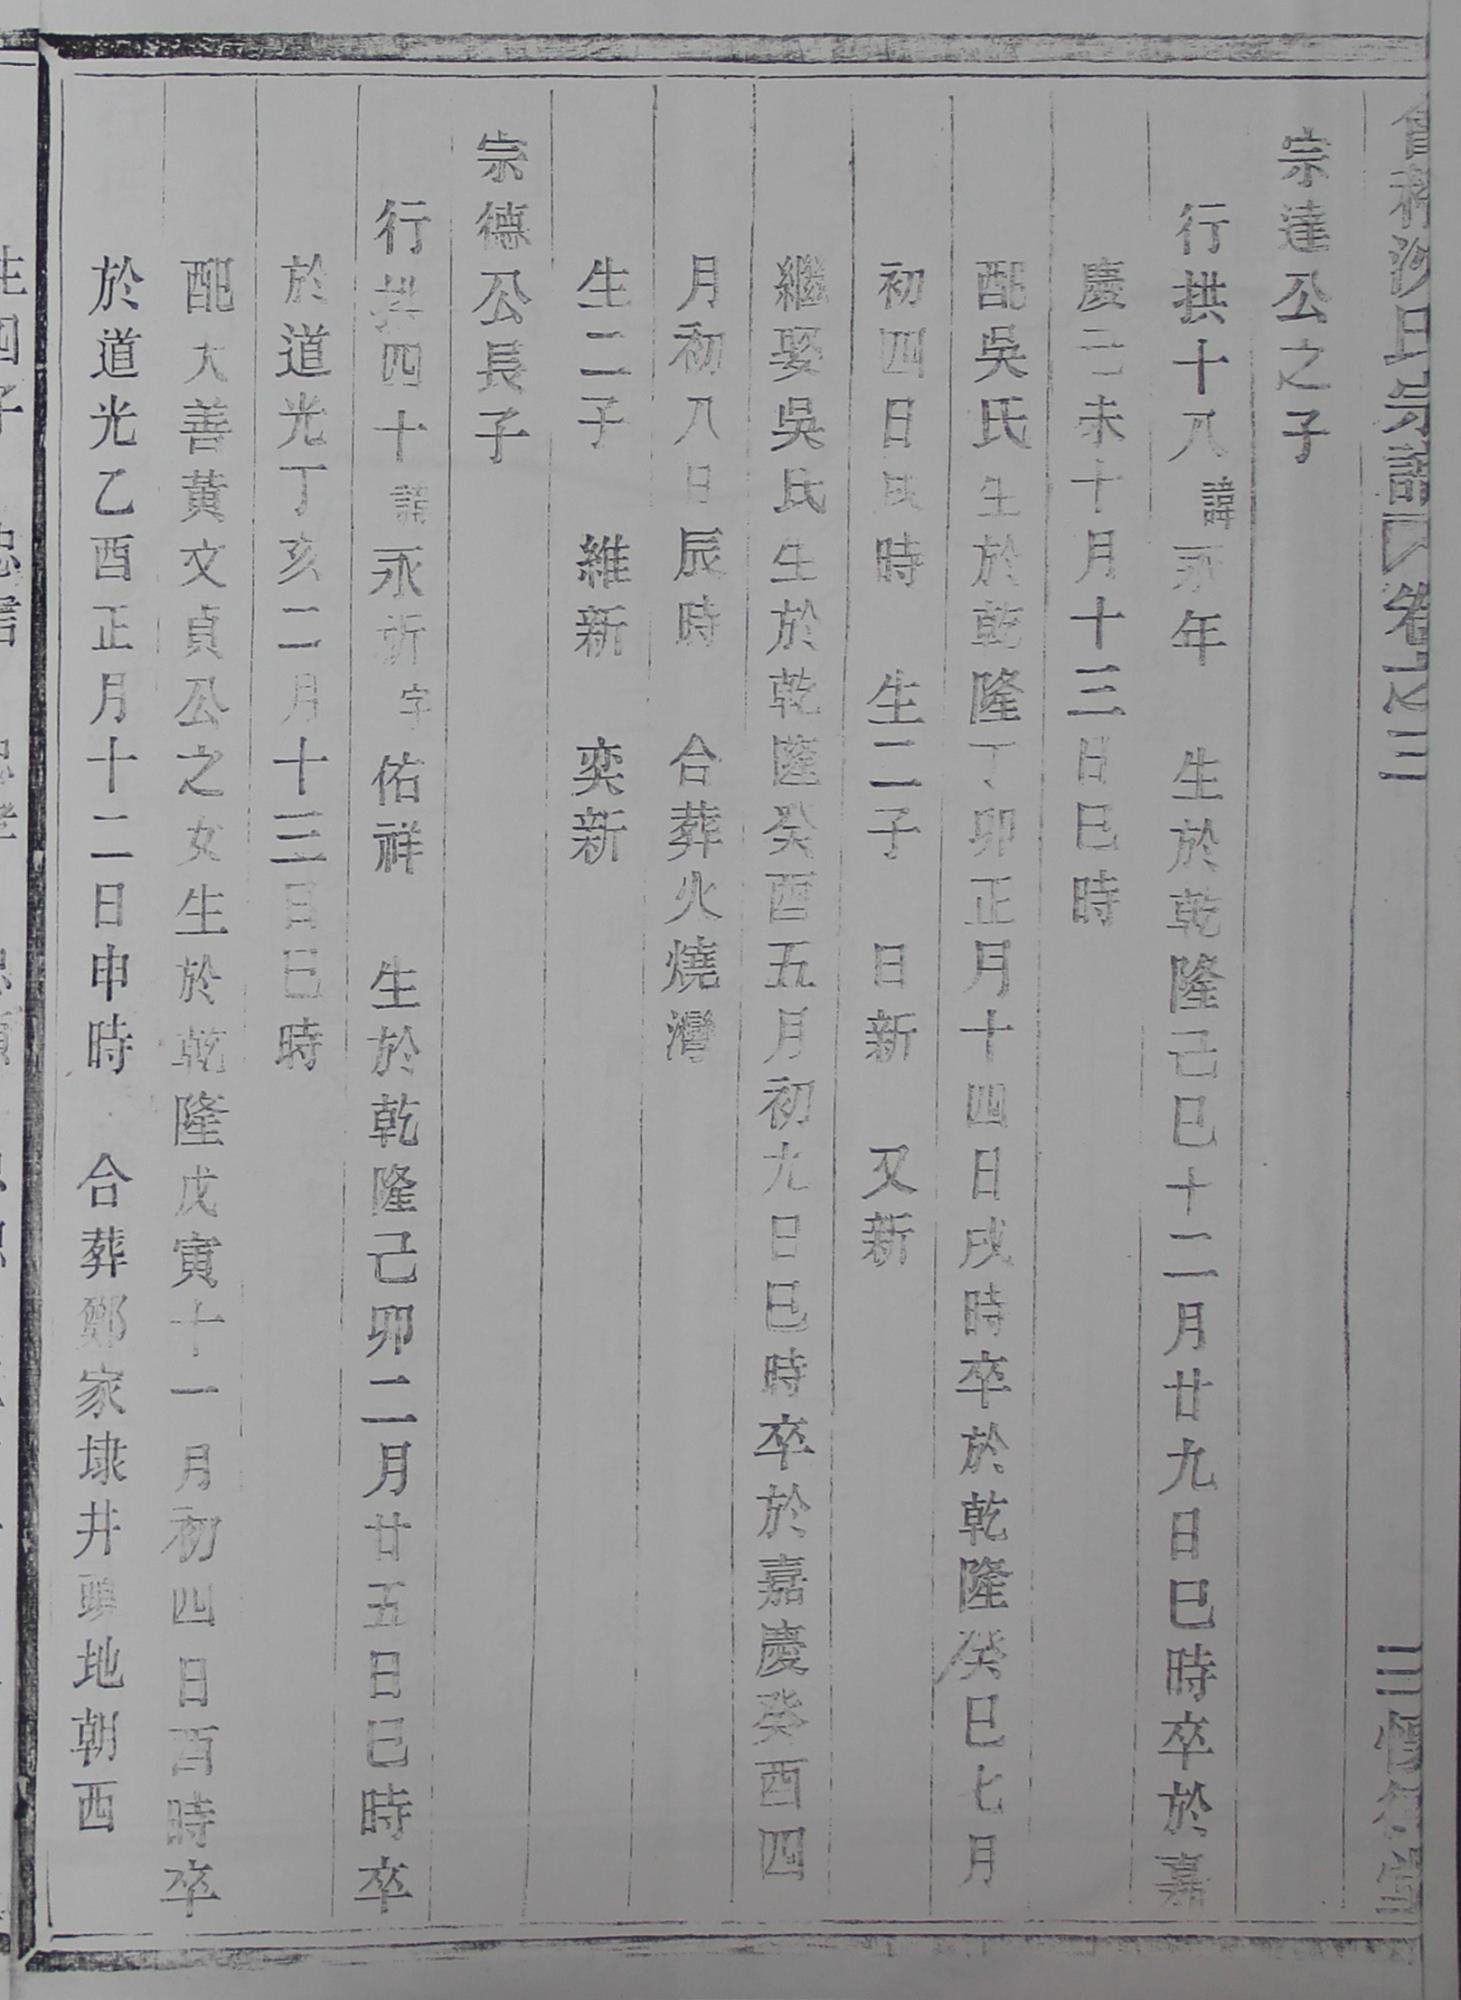 沙氏宗譜 卷之三 三
宗達公之子
行拱十八諱永年 生於乾隆己巳十二月廿九日巳時卒於嘉
慶己未十月十三日巳時
配吳氏生於乾隆丁卯正月十四日戌時卒於乾隆癸巳七月
初四日戌時 生二子 日新 又新
繼娶吳氏生於乾隆癸酉五月初九日巳時卒於嘉慶癸酉四
月初八日辰時 合葬火燒灣
生二子 維新 奕新
宗德公長子
行拱四十諱永祈字佑祥 生於乾隆己卯二月廿五日巳時卒
於道光丁亥二月十三日巳時
配大善黃文貞公之女生於乾隆戊寅十一月初四日酉時卒
於道光乙酉正月十二日申時 合葬鄭家埭井頭地朝西